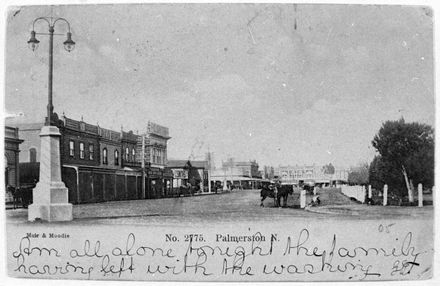 Muir & Moodie
No. 2775. Palmerston N.
05
Am all alone tonight the family
having left with the washing